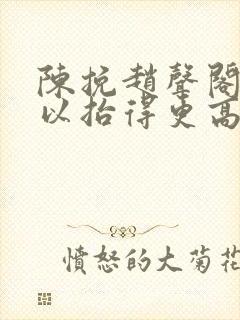 陳挽趙聲閣
以抬得更高
憤怒的大菊花